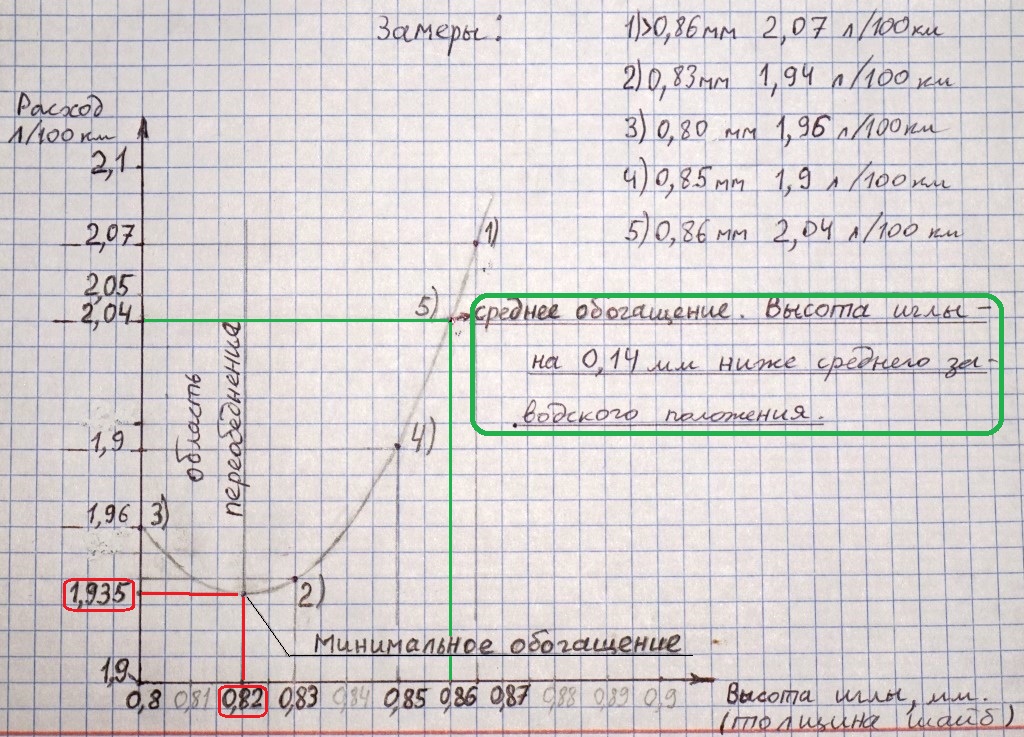 Замеры:
1)>0,86мм 2,07 л/100км
2)0,83мм 1,94 л/100 км
3) 0,80 мм 1,96 л/100км
4) 0,85мм 1,9 л/100км
5) 0,86 мм 2,04 л/100 км
Расход
л/100 км
2,1
2,07
1)
2,05
2,04
5)
среднее обогащение. Высота иглы -
на 0,14 мм ниже среднего за-
водского положения.
область
переобеднения
1,9
4)
1,96
3)
1,935
2)
Минимальное обогащение
1,9
0,8 0,81 0,82 0,83 0,84 0,85 0,86 0,87 0,88 0,89 0,9
Высота иглы, мм.
(толщина шайб)